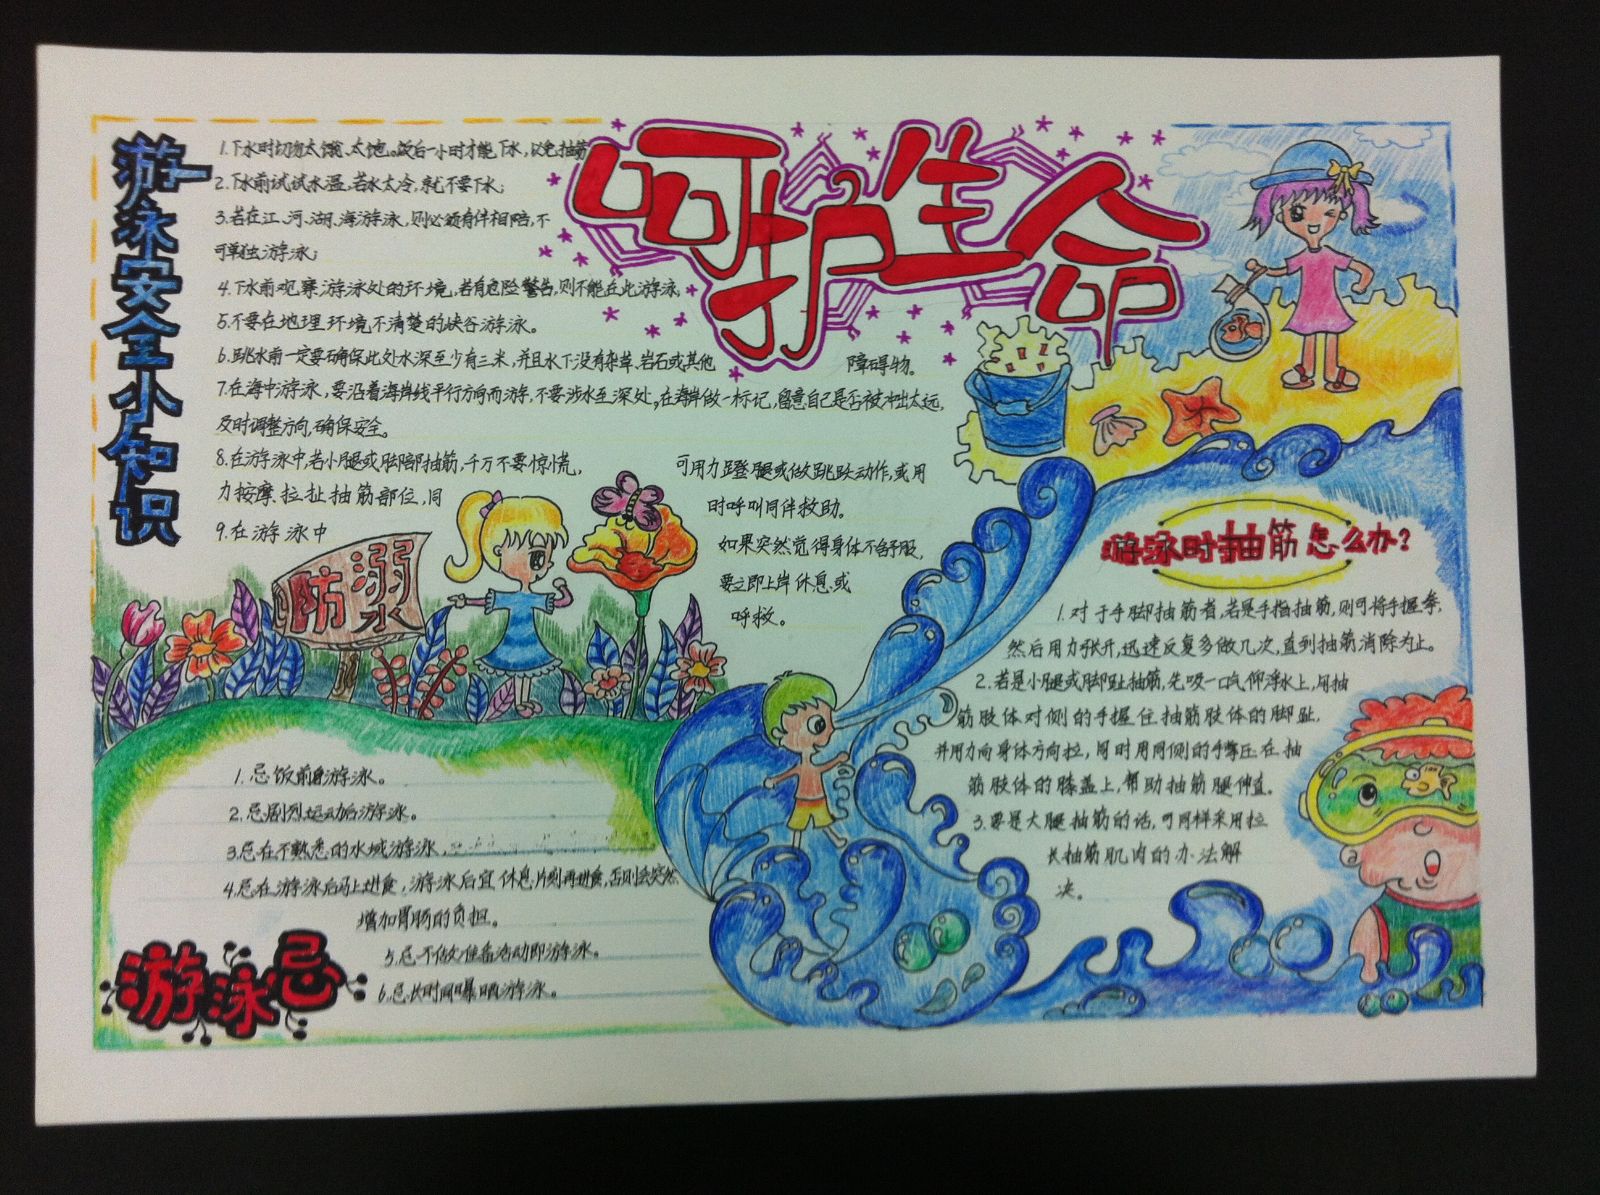 呵护生命
游泳安全小知识
1.下水时切勿太饿、太饱。饭后一小时才能下水,以免抽筋
2.下水前试试水温,若水太冷,就不要下水;
3.若在江、河、湖、海游泳,则必须有伴相陪,不
可单独游泳;
4.下水前观察游泳处的环境,若有危险警告,则不能在此游泳,
5.不要在地理环境不清楚的峡谷游泳。
6.跳水前一定要确保此处水深至少有三米,并且水下没有杂草、岩石或其他 障碍物。
7.在海中游泳,要沿着海岸线平行方向而游,不要涉水至深处,在海岸做一标记,留意自己是否被冲出太远,
及时调整方向,确保安全。
8.在游泳中,若小腿或脚部抽筋,千万不要惊慌, 可用力蹬腿或做跳跃动作,或用
力按摩、拉扯抽筋部位,同 时呼叫同伴救助。
9.在游泳中 如果突然觉得身体不舒服,
要立即上岸休息或
呼救。
防溺水
游泳时抽筋怎么办?
1.对于手脚抽筋者,若是手指抽筋,则可将手握拳,
然后用力张开,迅速反复多做几次,直到抽筋消除为止。
2.若是小腿或脚趾抽筋,先吸一口气仰浮水上,用抽
筋肢体对侧的手握住抽筋肢体的脚趾,
并用力向身体方向拉,同时用同侧的手掌压在抽
筋肢体的膝盖上,帮助抽筋腿伸直。
3.要是大腿抽筋的话,可同样采用拉
长抽筋肌肉的办法解
决。
游泳忌
1.忌饭前后游泳。
2.忌剧烈运动后游泳。
3.忌在不熟悉的水域游泳,
4.忌在游泳后马上进食,游泳后宜休息片刻再进食,否则会突然
增加胃肠的负担。
5.忌不做准备活动即游泳。
6.忌长时间曝晒游泳。